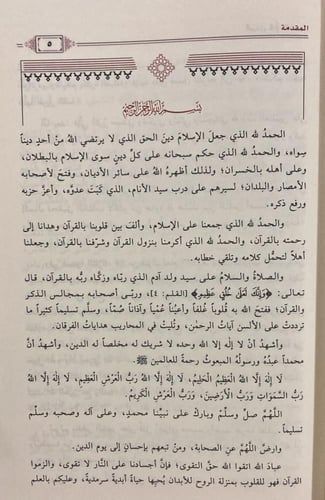 المقدمة
٥
بِسْمِ اللَّهِ الرَّحْمَنِ الرَّحِيمِ
الحمدُ لله الذي جعلَ الإسلامَ دينَ الحق الذي لا يرتضي اللهُ منْ أحدٍ ديناً
سِواه، والحمدُ لله الذي حكم سبحانه على كلِّ دينٍ سوى الإسلام بالبطلان،
وعلى أهله بالخسران؛ ولذلك أظهرهُ اللهُ على سائرِ الأديان، وفتحَ لأصحابه
الأمصار والبلدان؛ لسيرهم على درب سيد الأنام، الذي كَبَتَ عدوَّه، وأعزَّ حزبه
ورفع ذكره.
والحمدُ لله الذي جمعنا على الإسلام، وألفَ بين قلوبنا بالقرآن وهدانا إلى
رحمته بالقرآن، والحمدُ لله الذي أكرمنا بنزول القرآن وشرَّفنا بالقرآن، وجعلنا
أهلاً لتحمُّل كلامه وتلقي خطابه.
والصلاةُ والسلامُ على سيد ولد آدم الذي ربّاه وزكّاه ربُّه بالقرآن، قال
تعالى: ﴿وَإِنَّكَ لَعَلَى خُلُقٍ عَظِيمٍ﴾ [القلم: ٤]، وربّى أصحابه بمجالس الذكر
والقرآن؛ ففتحَ الله به قُلوباً غُلفاً وأعيُناً عُمياً وآذاناً صُمّاً، وسلَّم تسليماً كثيراً ما
ترددت على الألسن آياتُ الرحمٰن، وتُليتْ في المحاريب هداياتُ الفرقان.
وأشهدُ أنْ لا إلٰه إلا الله وحده لا شريك له مخلصاً له الدين، وأشهدُ أنَّ
محمداً عبدُه ورسولُه المبعوث رحمةً للعالمين ﷺ.
لَا إِلَهَ إِلَّا اللهُ العَظِيمُ الْحَلِيمُ، لَا إِلَهَ إِلَّا اللهُ رَبُّ الْعَرْشِ الْعَظِيمِ، لَا إِلَهَ إِلَّا اللهُ
رَبُّ السَّمَوَاتِ وَرَبُّ الْأَرَضِينَ، وَرَبُّ الْعَرْشِ الْكَرِيمُ.
اللَّهُمَّ صلِّ وسلِّمْ وباركْ على نبيِّنا محمدٍ، وعلى آله وصحبه وسلَّم
تسليماً.
وارضَ اللَّهُمَّ عنِ الصحابة، ومنْ تبعهم بإحسانٍ إلى يوم الدين.
عبادَ الله اتقوا الله حقَّ التقوى؛ فإنَّ أجسادنا على النَّار لا تقوى، والزموا
القرآن فهو للقلوب بمنزلة الروح للأبدان يُحييها حياةً أبديةً سرمديةً، وعليكم بالعلم